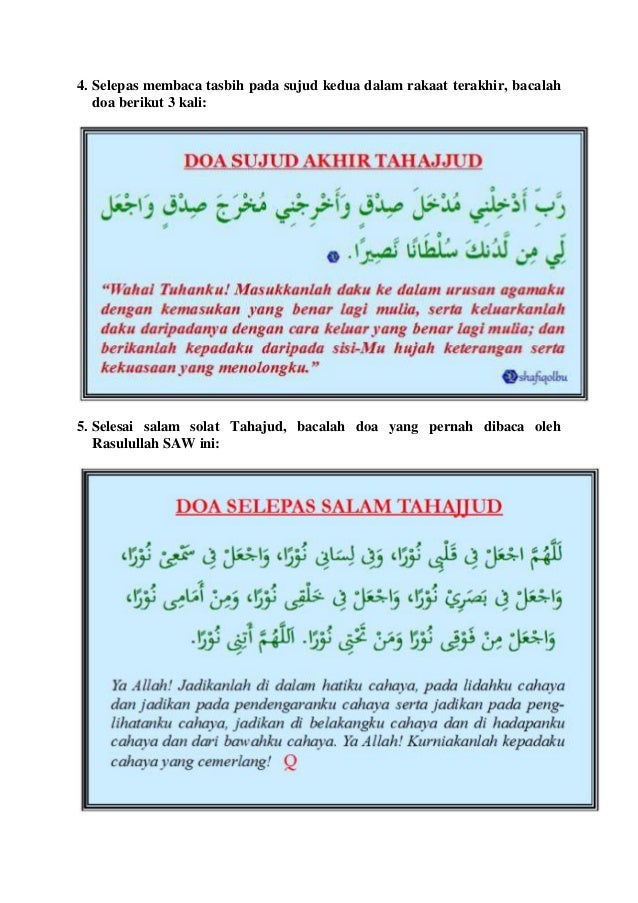 4. Selepas membaca tasbih pada sujud kedua dalam rakaat terakhir, bacalah
doa berikut 3 kali:
DOA SUJUD AKHIR TAHAJJUD
رَّبِّ أَدْخِلْنِي مُدْخَلَ صِدْقٍ وَأَخْرِجْنِي مُخْرَجَ صِدْقٍ وَاجْعَل
لِّي مِن لَّدُنكَ سُلْطَانًا نَّصِيرًا.
“Wahai Tuhanku! Masukkanlah daku ke dalam urusan agamaku
dengan kemasukan yang benar lagi mulia, serta keluarkanlah
daku daripadanya dengan cara keluar yang benar lagi mulia; dan
berikanlah kepadaku daripada sisi-Mu hujah keterangan serta
kekuasaan yang menolongku.”
shafiqolbu
5. Selesai salam solat Tahajud, bacalah doa yang pernah dibaca oleh
Rasulullah SAW ini:
DOA SELEPAS SALAM TAHAJJUD
لَلَّهُمَّ اجْعَلْ فِى قَلْبِى نُوْرًا، وَفِى لِسَانِى نُوْرًا، وَاجْعَلْ فِى سَمْعِىْ نُوْرًا،
وَاجْعَلْ فِى بَصَرِيْ نُوْرًا، وَاجْعَلْ فِى خَلْقِى نُوْرًا، وَمِنْ أَمَامِى نُوْرًا،
وَاجْعَلْ مِنْ فَوْقِى نُوْرًا وَمَنْ تَحْتِى نُوْرًا. اَللَّهُمَّ أَتِنِى نُوْرًا.
Ya Allah! Jadikanlah di dalam hatiku cahaya, pada lidahku cahaya
dan jadikan pada pendengaranku cahaya serta jadikan pada peng-
lihatanku cahaya, jadikan di belakangku cahaya dan di hadapanku
cahaya dan dari bawahku cahaya. Ya Allah! Kurniakanlah kepadaku
cahaya yang cemerlang! Q